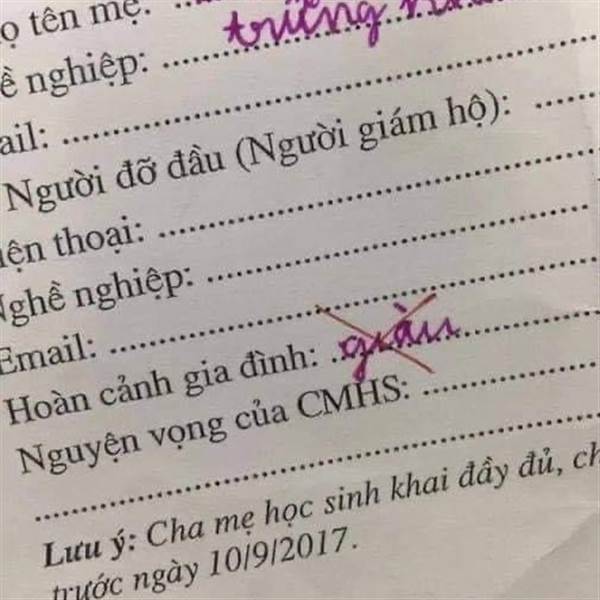 ọ tên mẹ: ..
ề nghiệp: trứng
ail:
Người đỡ đầu (Người giám hộ):
iện thoại:
Nghề nghiệp:
Email:
Hoàn cảnh gia đình: giàu
Nguyện vọng của CMHS:
Lưu ý: Cha mẹ học sinh khai đầy đủ, ch
trước ngày 10/9/2017.